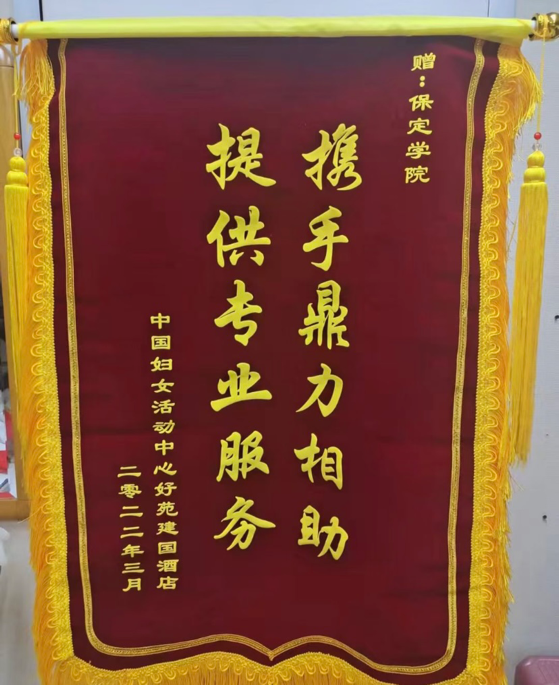 赠：保定学院
携手鼎力相助
提供专业服务
中国妇女活动中心好苑建国酒店
二零二二年三月